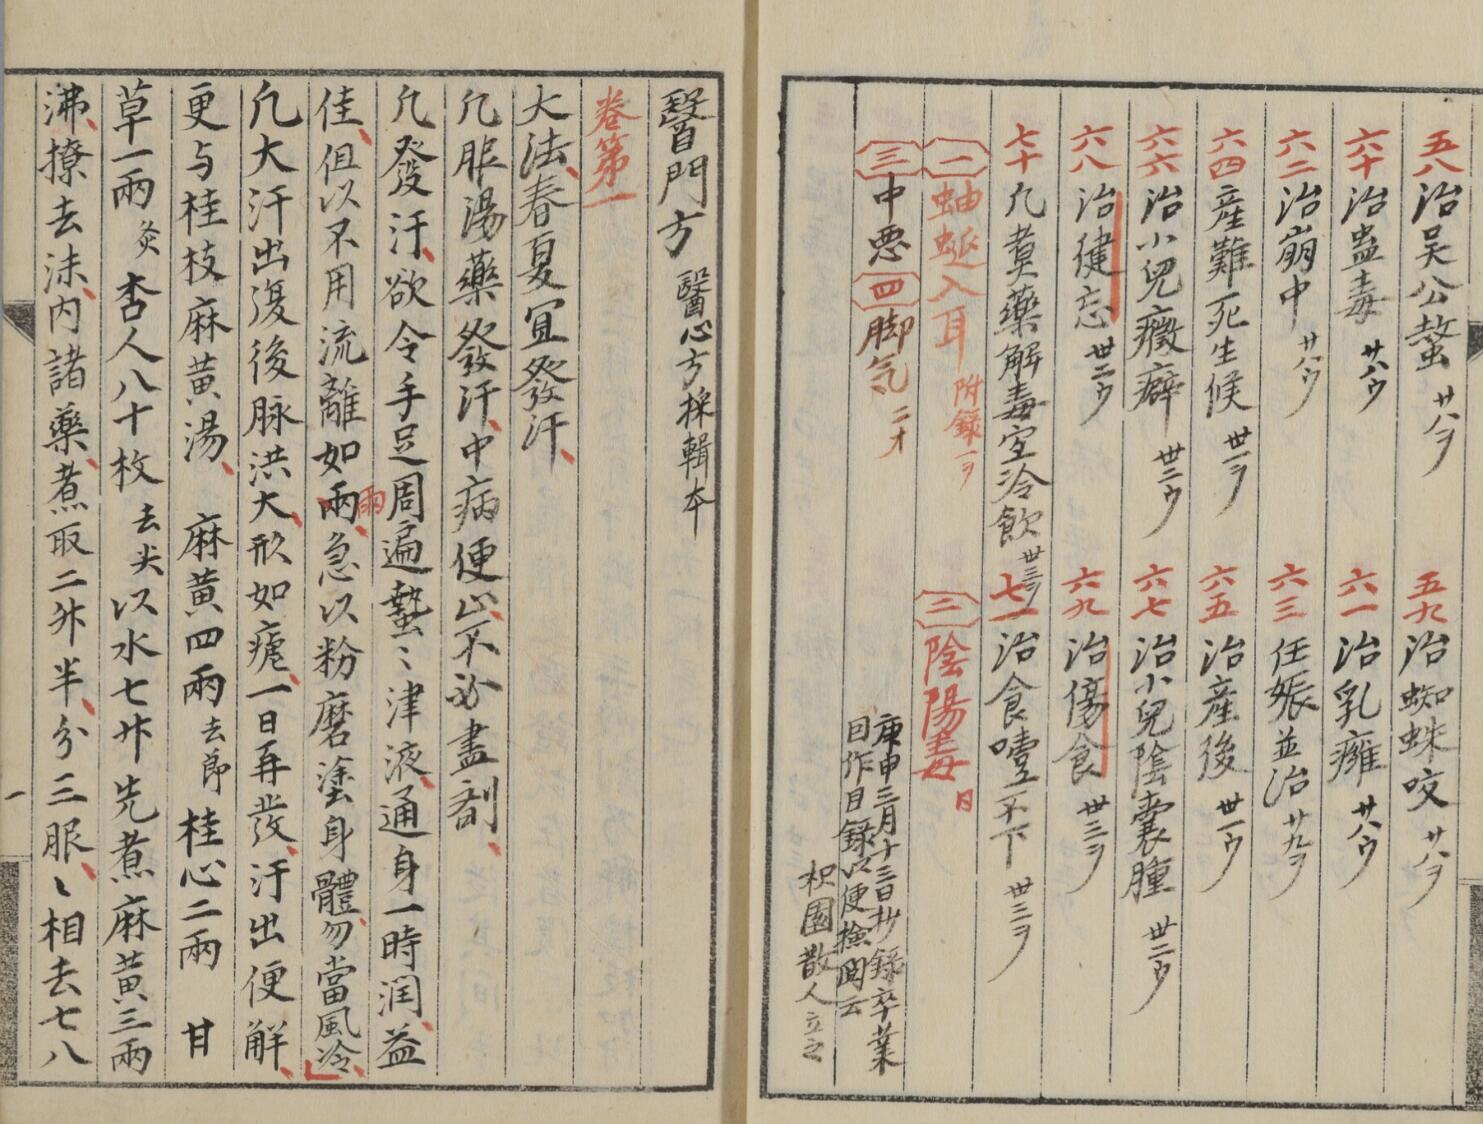 五八治吴公螫 廿八ヲ
五九治蜘蛛咬 廿八ヲ
六十治蛊毒 廿八ウ
六一治乳癰 廿八ウ
六二治崩中 廿八ウ
六三任娠並治 廿九ヲ
六四産難死生候 丗一ヲ
六五治産後 丗一ウ
六六治小兒癥癖 丗二ウ
六七治小兒陰囊腫 丗二ウ
六八治健忘 丗二ウ
六九治傷食 丗三ヲ
七十凢煑藥解毒宜冷飲 丗三ヲ
七一治食噎不下 丗三ヲ
一 蚰蜒入耳 附録一ヲ
二 陰陽毒 日
三 中悪 四 脚気 二オ
庚申三月十三日抄録卒業
因作目録以便檢閲云
枳園散人立之
醫門方 醫心方採輯本
卷第一
大法、春夏宜發汗、
凢服湯藥發汗、中病便止、不必盡劑、
凢發汗、欲令手足周遍漐〻津液、通身一時潤、益
佳、但以不用流離如兩、雨急以粉磨塗身體、勿當風冷、
凢大汗出復後脉洪大、形如瘧、一日再發、汗出便解、
更与桂枝麻黄湯、 麻黄四兩去節 桂心二兩 甘
草一兩炙 杏人八十枚去尖 以水七升先煮麻黄三兩
沸、撩去沫、内諸藥、煮取二升半、分三服、〻相去七八
一